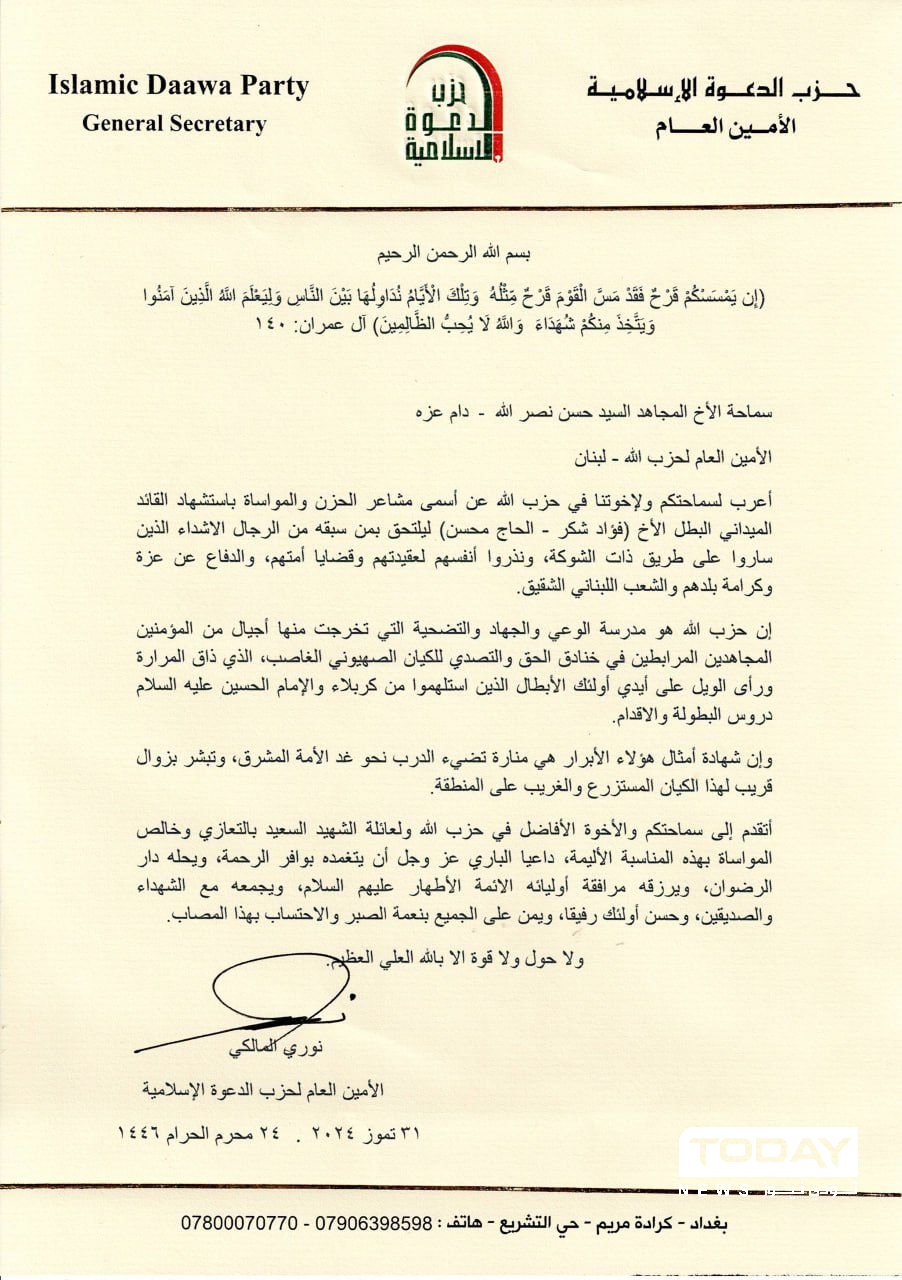 Islamic Daawa Party
General Secretary
حزب
الدعوة
الإسلامية
حـزب الدعـوة الإسلاميـة
الأمـين العـام
بسم الله الرحمن الرحيم
(إِن يَمْسَسْكُمْ قَرْحٌ فَقَدْ مَسَّ الْقَوْمَ قَرْحٌ مِّثْلُهُ وَتِلْكَ الْأَيَّامُ نُدَاوِلُهَا بَيْنَ النَّاسِ وَلِيَعْلَمَ اللَّهُ الَّذِينَ آمَنُوا
وَيَتَّخِذَ مِنكُمْ شُهَدَاءَ وَاللَّهُ لَا يُحِبُّ الظَّالِمِينَ) آل عمران: ١٤٠
سماحة الأخ المجاهد السيد حسن نصر الله - دام عزه
الأمين العام لحزب الله - لبنان
أعرب لسماحتكم ولإخوتنا في حزب الله عن أسمى مشاعر الحزن والمواساة باستشهاد القائد
الميداني البطل الأخ (فؤاد شكر - الحاج محسن) ليلتحق بمن سبقه من الرجال الاشداء الذين
ساروا على طريق ذات الشوكة، ونذروا أنفسهم لعقيدتهم وقضايا أمتهم، والدفاع عن عزة
وكرامة بلدهم والشعب اللبناني الشقيق.
إن حزب الله هو مدرسة الوعي والجهاد والتضحية التي تخرجت منها أجيال من المؤمنين
المجاهدين المرابطين في خنادق الحق والتصدي للكيان الصهيوني الغاصب، الذي ذاق المرارة
ورأى الويل على أيدي أولئك الأبطال الذين استلهموا من كربلاء والإمام الحسين عليه السلام
دروس البطولة والاقدام.
وإن شهادة أمثال هؤلاء الأبرار هي منارة تضيء الدرب نحو غد الأمة المشرق، وتبشر بزوال
قريب لهذا الكيان المستزرع والغريب على المنطقة.
أتقدم إلى سماحتكم والأخوة الأفاضل في حزب الله ولعائلة الشهيد السعيد بالتعازي وخالص
المواساة بهذه المناسبة الأليمة، داعيا الباري عز وجل أن يتغمده بوافر الرحمة، ويحله دار
الرضوان، ويرزقه مرافقة أوليائه الائمة الأطهار عليهم السلام، ويجمعه مع الشهداء
والصديقين، وحسن أولئك رفيقا، ويمن على الجميع بنعمة الصبر والاحتساب بهذا المصاب.
ولا حول ولا قوة الا بالله العلي العظيم.
نوري المالكي
الأمين العام لحزب الدعوة الإسلامية
٣١ تموز ٢٠٢٤ . ٢٤ محرم الحرام ١٤٤٦
TODAY
NEWS
بغداد - كرادة مريم - حي التشريع - هاتف : 07906398598 - 07800070770